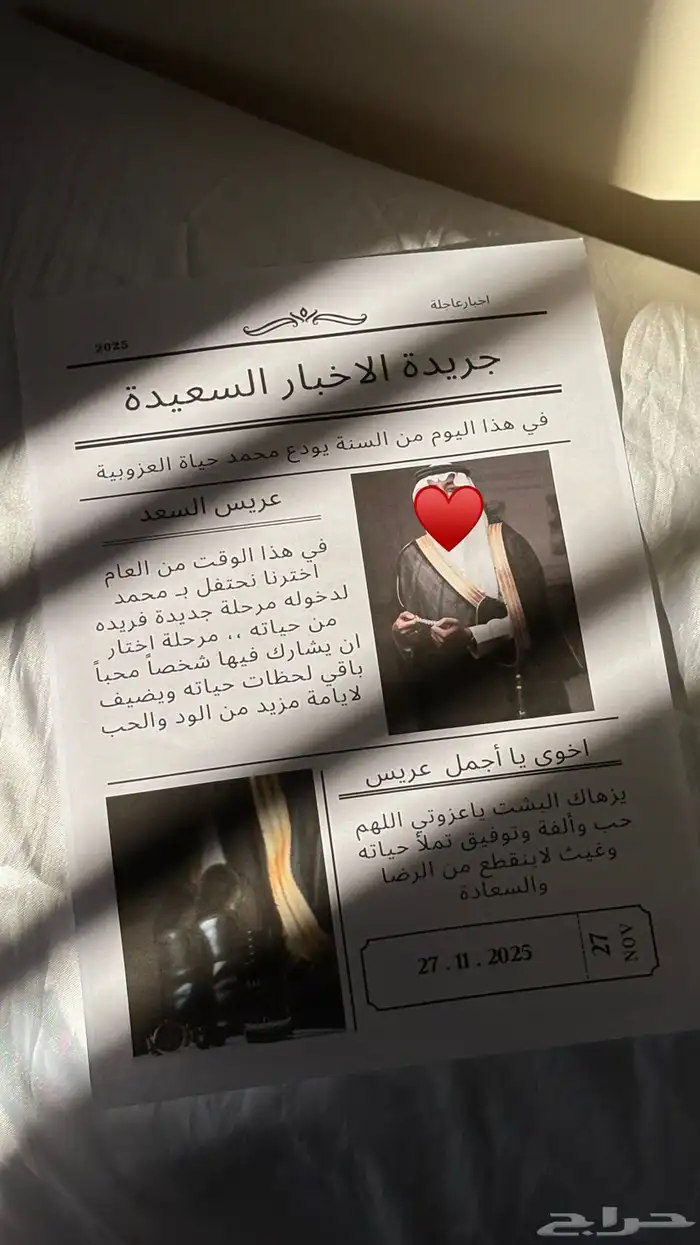 اخبارعاجلة
2025
جريدة الاخبار السعيدة
في هذا اليوم من السنة يودع محمد حياة العزوبية
عريس السعد
في هذا الوقت من العام
اخترنا نحتفل بـ محمد
لدخوله مرحلة جديدة فريده
من حياته ،، مرحلة اختار
ان يشارك فيها شخصاً محباً
باقي لحظات حياته ويضيف
لايامة مزيد من الود والحب
اخوى يا أجمل عريس
يزهاك البشت ياعزوتي اللهم
حب وألفة وتوفيق تملأ حياته
وغيث لاينقطع من الرضا
والسعادة
27 . 11 . 2025
27
NOV
حراج